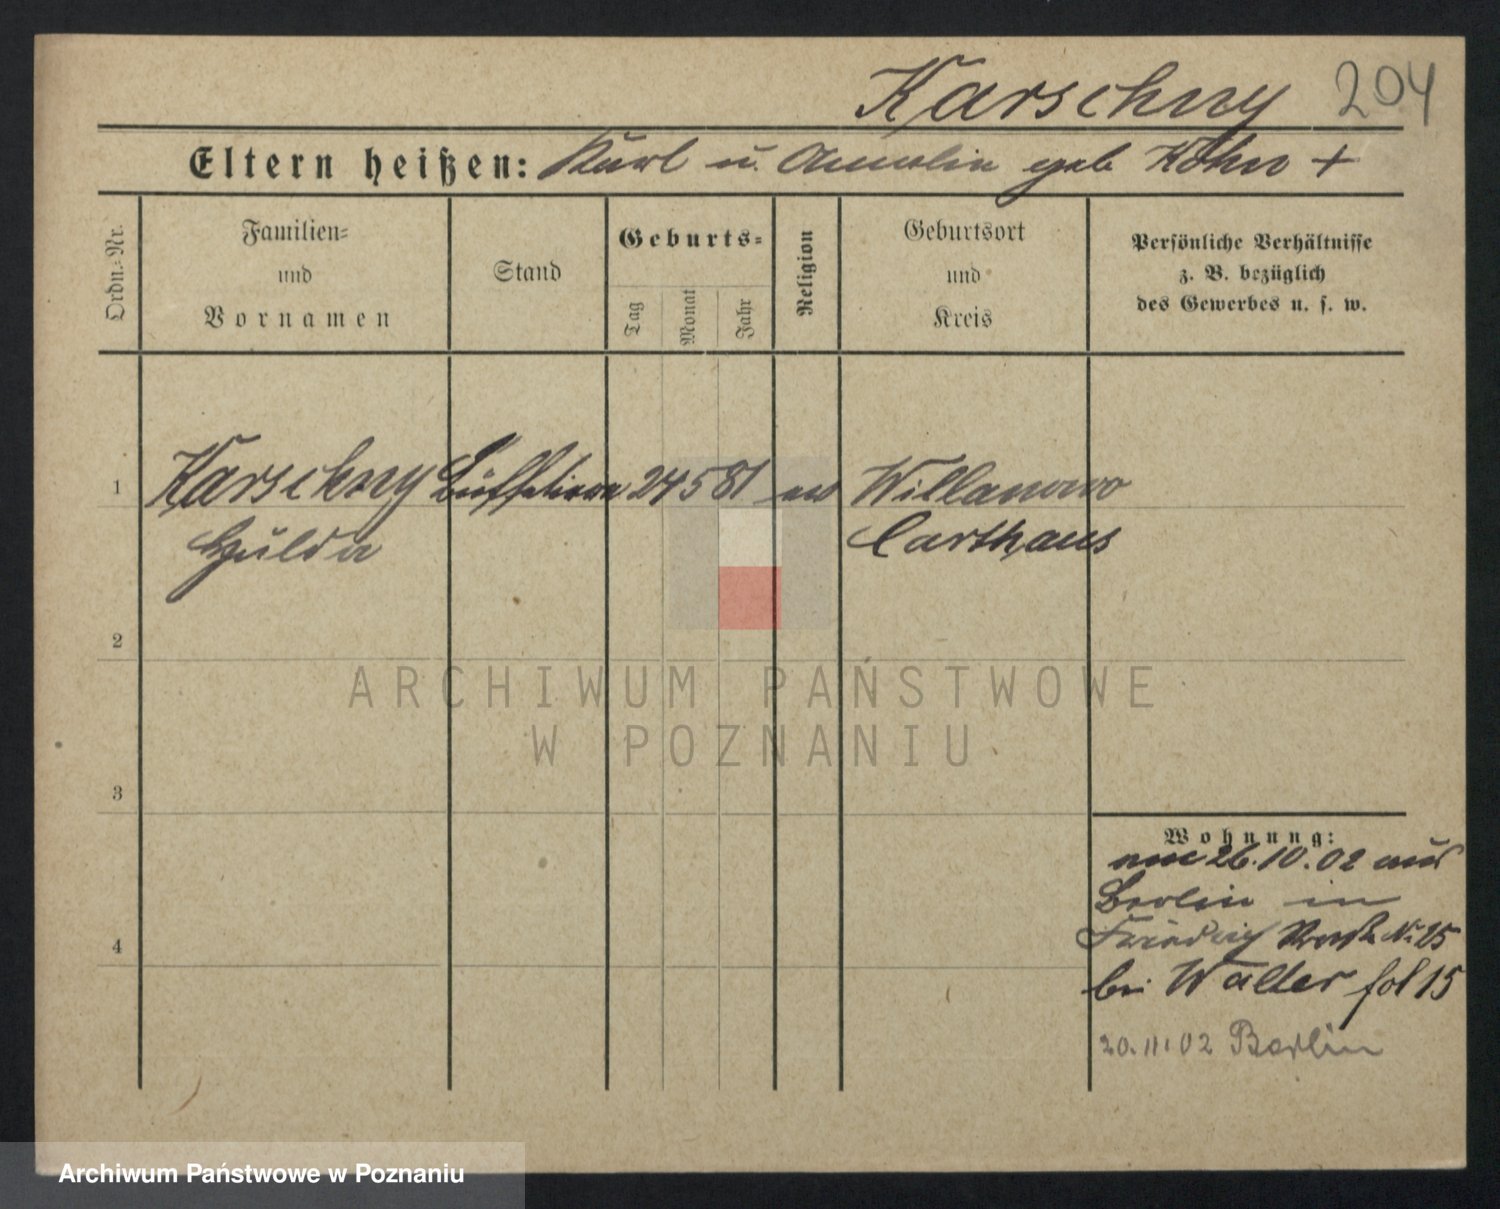 Karschny 204
Eltern heißen: Karl u. Amalin geb Kohn +
Ordn.-Nr.
Familien-
und
Vornamen
Stand
Geburts-
Tag
Monat
Jahr
Religion
Geburtsort
und
Kreis
Persönliche Verhältnisse
z. B. bezüglich
des Gewerbes u. s. w.
1 Karschny 24 5 81 Willanowo
Hulda Carthaus
2
3
4
Wohnung:
26.10.02 aus
Berlin in
Friedrich Straße No 25
bei Walter fol 15
20.11.02 Berlin
ARCHIWUM PAŃSTWOWE
W POZNANIU
Archiwum Państwowe w Poznaniu